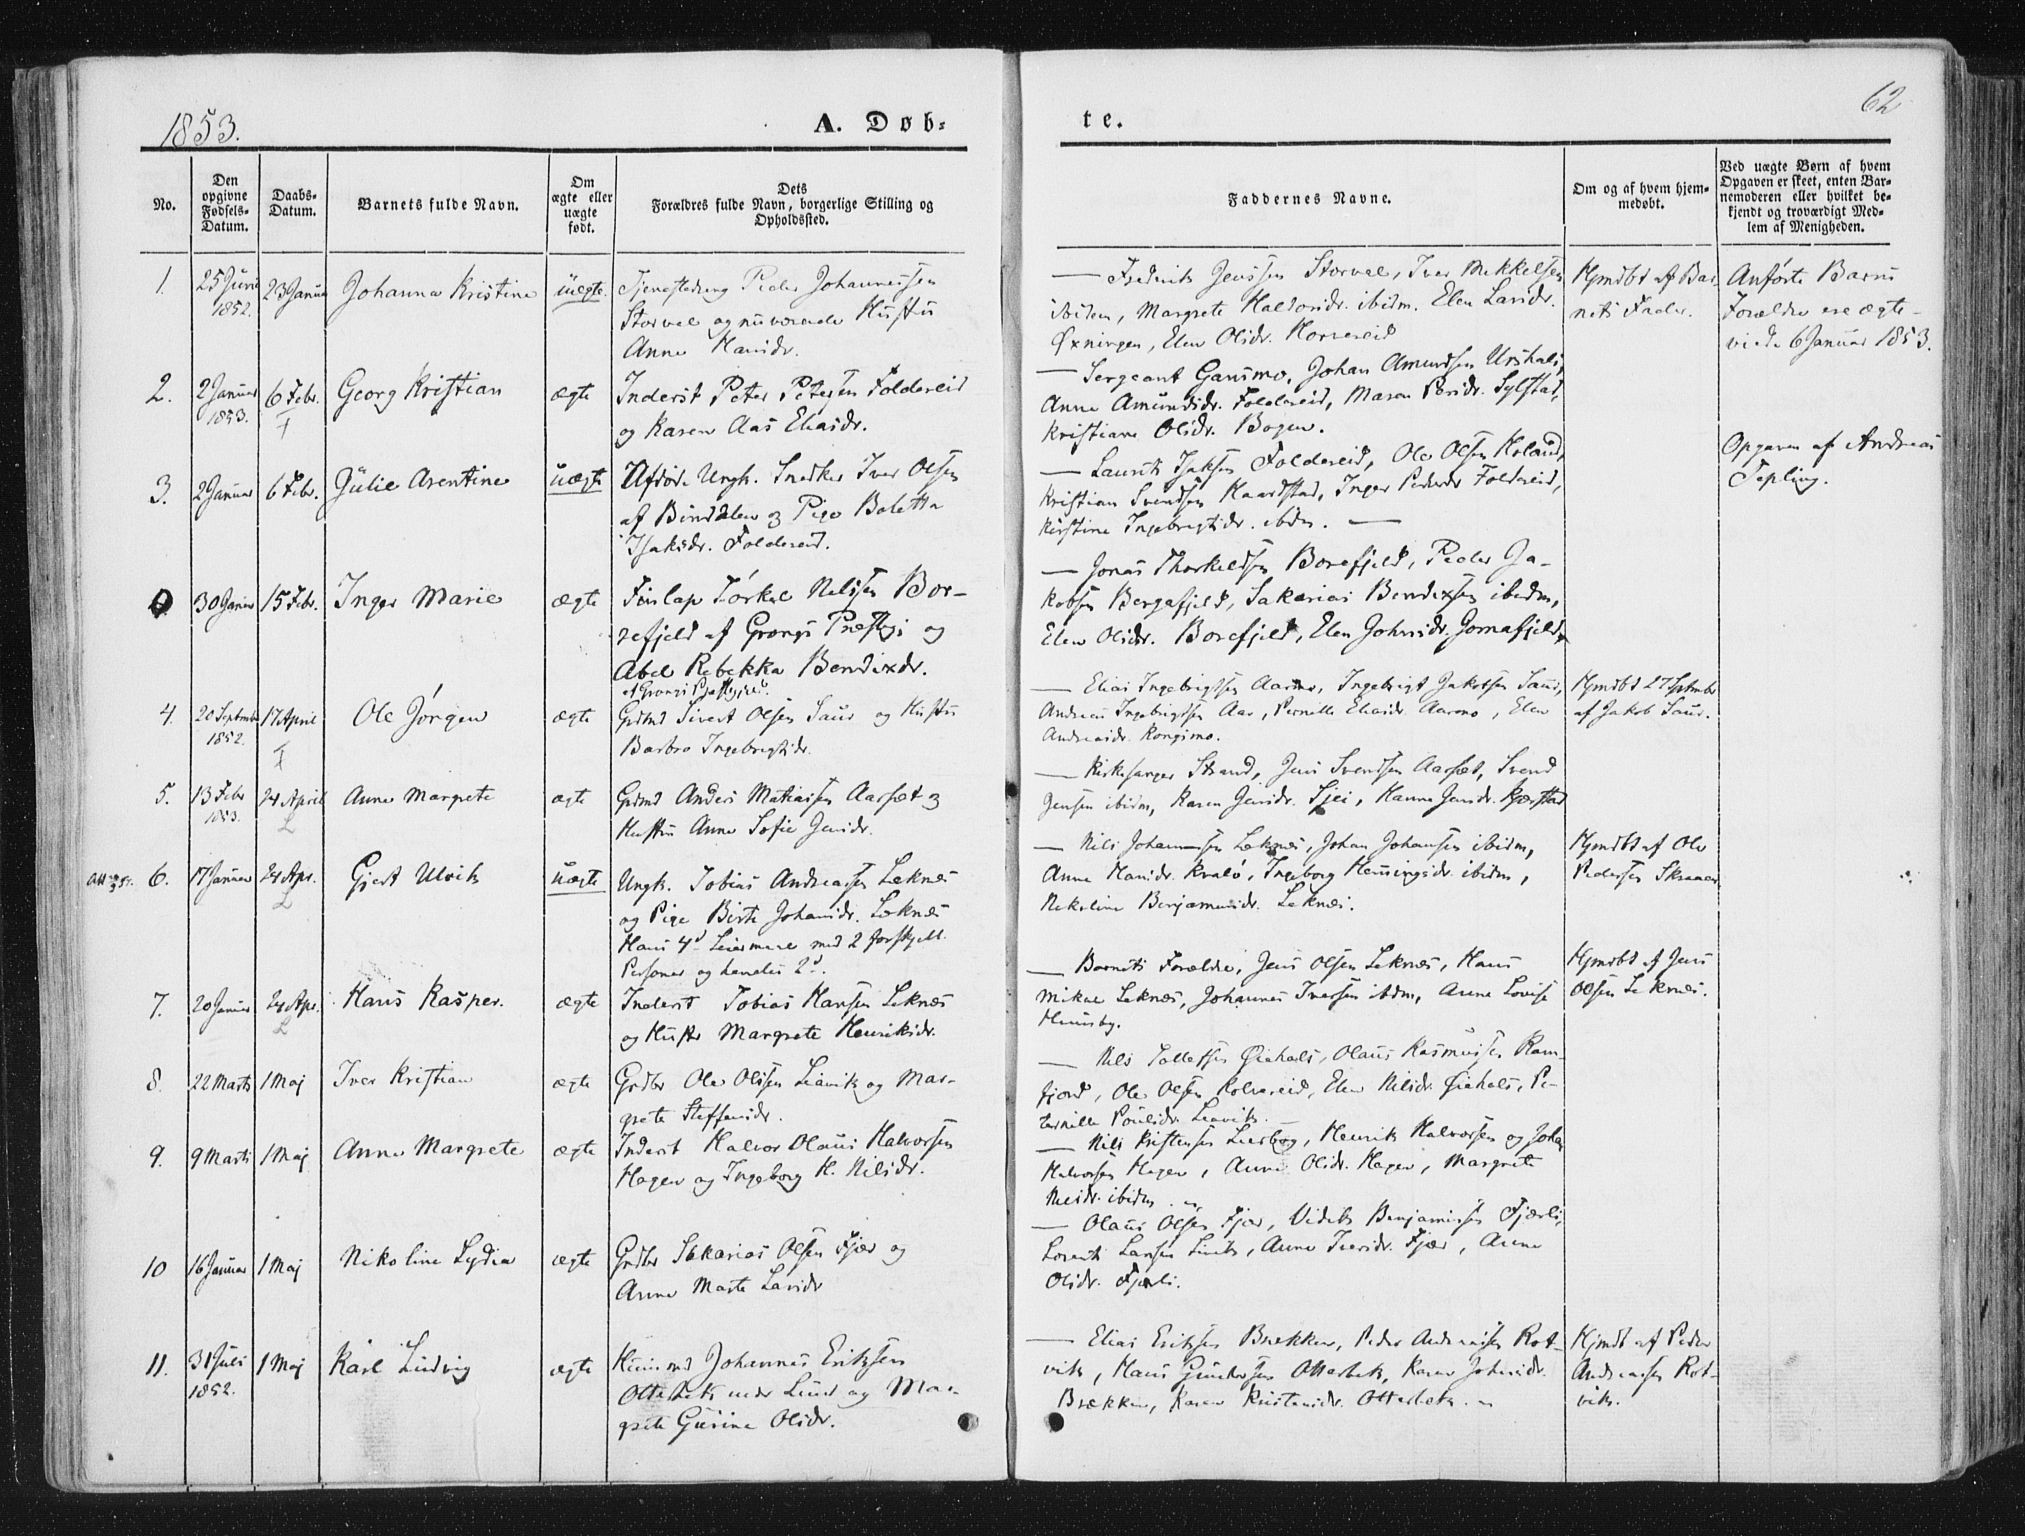 1853.
A. Døb-
te.
62
No.
Den opgivne Fødsels-Datum.
Daabs-Datum.
Barnets fulde Navn.
Om ægte eller uægte født.
Dets Forældres fulde Navn, borgerlige Stilling og Opholdssted.
Faddernes Navne.
Om og af hvem hjemmedøbt.
Ved uægte Børn af hvem Opgaven er skeet, enten Barnemoderen eller hvilket bekjendt og troværdigt Medlem af Menigheden.
1. 25 Juni 1852. 23 Januar Johanna Kristine uægte. Tjenestedreng Peder Johannessen
Storval og nuværende Hustru
Anne Hansdr.
— Frederik Jenssen Storval, Iver Mikkelsen
ibidem, Margrete Haldorsdr. ibidm. Elen Larsdr.
Øxningen, Elen Olsdr. Horsereid
Hjmdbt af Bar-
nets Fader.
Anførte Barns
Forældre ere ægte-
viede 6 Januar 1853.
2. 2 Januar 1853. 6 Febr. Georg Kristian ægte Inderst Peter Petersen Foldereid
og Karen Aas Eliasdr.
— Sergeant Gansmo, Johan Amundsen
Anne Amundsdr. Foldereid, Maren Persdr.
Kristiane Olsdr. Bogen.
3. 2 Januar 6 Febr. Julie Arentine uægte Afdøde Ungk. Snedker Iver Olsen
af Binddalen og Pige Boletta
Isaksdr. Foldereid.
— Laurits Isaksen Foldereid, Ole Olsen Holand,
Kristian Svendsen Kaardstad, Inger Pedersdr Foldereid,
Kirstine Ingebrigtsdr. ibidm. —
Opgaven af Andreas
Tepling.
0 30 Januar 15 Febr. Inger Marie ægte Finlap Torkel Nelsen Bor-
refjeld af Grongs Præstegj. og
Abel Rebekka Bendixdr.
af Grongs Præstegjeld.
— Jonas Thorkeldsen Borefjeld, Peder Ja-
kobsen Bergafjeld, Sakarias Bendixsen ibidm,
Elen Olsdr. Borefjeld, Elen Johnsdr. Jomafjeld
4. 20 Septmbr 1852. 17 April Ole Jørgen ægte Grdmd Sivert Olsen Saur og Hustru
Barbro Ingebrigtsdr.
— Elias Ingebrigtsen Aarmo, Ingebrigt Jakobsen Saur,
Andreas Ingebrigtsen Aar, Pernille Eliasdr Aarmo, Elen
Andreasdr. Rongsmo.
Hjmdbt 27 Septmbr
af Jakob Saur.
5. 13 Febr 1853. 24 April Anne Margrete ægte Grdmd Anders Matiassen Aarsæt og
Hustru Anne Sofie Jensdr.
— Kirkesanger Strand, Jens Svendsen Aarsæt, Svend
Jensen ibidm, Karen Jensdr. , Hanna Jensdr.
6. 17 Januar 24 Apr. Gjert Ulrik uægte Ungk. Tobias Andreassen Leknes
og Pige Birte Johansdr. Leknes
Hans 4d Leiermaal med 2 forskjell.
Personer og hendes 2d.
— Nils Johannsen Leknes, Johan Johansen ibidm,
Anne Hansdr. Kvalø, Ingeborg Henningsdr. ibidm,
Nikoline Benjaminsdr. Leknes.
Hjmdbt af Ole
Pedersen
7. 20 Januar 24 Apr. Hans Kasper. ægte Inderst Tobias Hansen Leknes
og Hustr Margrete Henriksdr.
— Barnets Forældre, Jens Olsen Leknes, Hans
Mikal Leknes, Johannes Iversen ibidm, Anne Lovise
Hmdbt af Jens
Olsen Leknes.
8. 22 Marts 1 Maj Iver Kristian ægte Grdbr Ole Olsen Liavik og Mar-
grete Steffensdr.
— Nils Tollefsen , Olaus Rasmusen Ram-
fjord, Ole Olsen Kolvereid, Elen Nilsdr. , Pe-
ternille Poulsdr. Leavik.
9. 9 Marts 1 Maj Anne Margrete ægte Inderst Halvor Olaus Halvorsen
Hagen og Ingeborg H. Nilsdr.
— Nils Kristensen , Henrik Halvorsen og Johan
Halvorsen Hagen, Anne Olsdr. Hagen, Margrete
Nilsdr. ibidm.
10 16 Januar 1 Maj Nikoline Lydia ægte Grdbr Sakarias Olsen Fjær og
Anne Marte Larsdr
— Olaus Olsen Fjær, Benjaminsen Fjærli,
Lorents Larsen , Anne Iversdr. Fjær, Anne
Olsdr. Fjærli.
11. 31 Juli 1852. 1 Maj Karl Ludvig ægte Husmd Johannes Eriksen
Otterbek under Lund og Mar-
grete Gurine Olsdr.
— Elias Eriksen Brekken, Peder Andreassen Rot-
vik, Hans Gundersen Otterbek, Karen Johnsdr.
Brækken, Karen Kristensdr. Otterbek.
Hjmdt af Peder
Andreassen Rot-
vik.